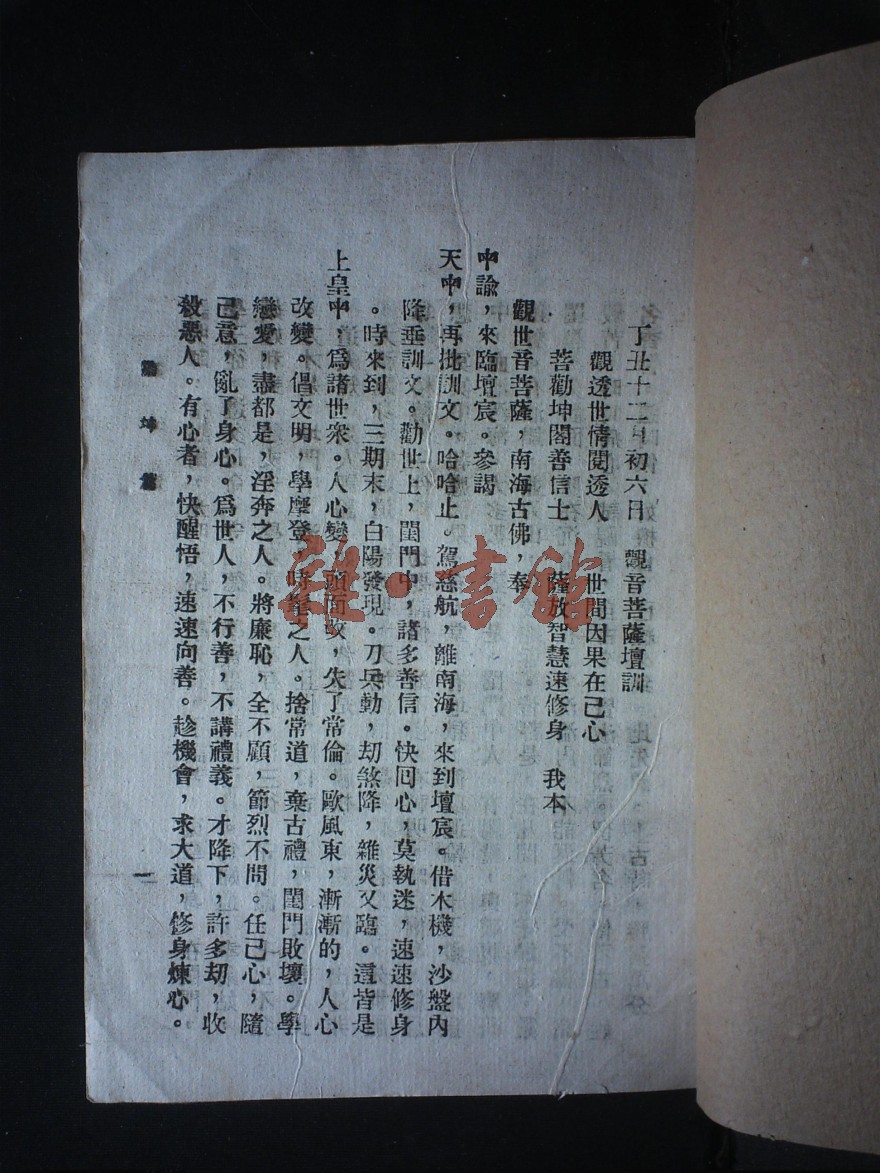 丁丑十二月初六日　觀音菩薩壇訓
觀透世情閱透人　世間因果在己心
菩勸坤閣善信士　薩放智慧速修身　我本
觀世音菩薩，南海古佛，奉
中諭，來臨壇宸。參謁
天中，再批訓文。哈哈止。駕慈航，離南海，來到壇宸。借木機，沙盤內
降垂訓文。勸世上，閨門中，諸多善信。快回心，莫執迷，速速修身
。時來到，三期末，白陽發現。刀兵動，劫煞降，雜災又臨。這皆是
上皇中，爲諸世衆。人心變，頭面改，失了常倫。歐風東，漸漸的，人心
改變。倡文明，學摩登，時髦之人。捨常道，棄古禮，閨門敗壞。學
戀愛，盡都是，淫奔之人。將廉恥，全不顧，節烈不問。任己心，隨
己意，亂了身心。爲世人，不行善，不講禮義。才降下，許多劫，收
殺惡人。有心者，快醒悟，速速向善。趁機會，求大道，修身煉心。
坤
一
雜·書館